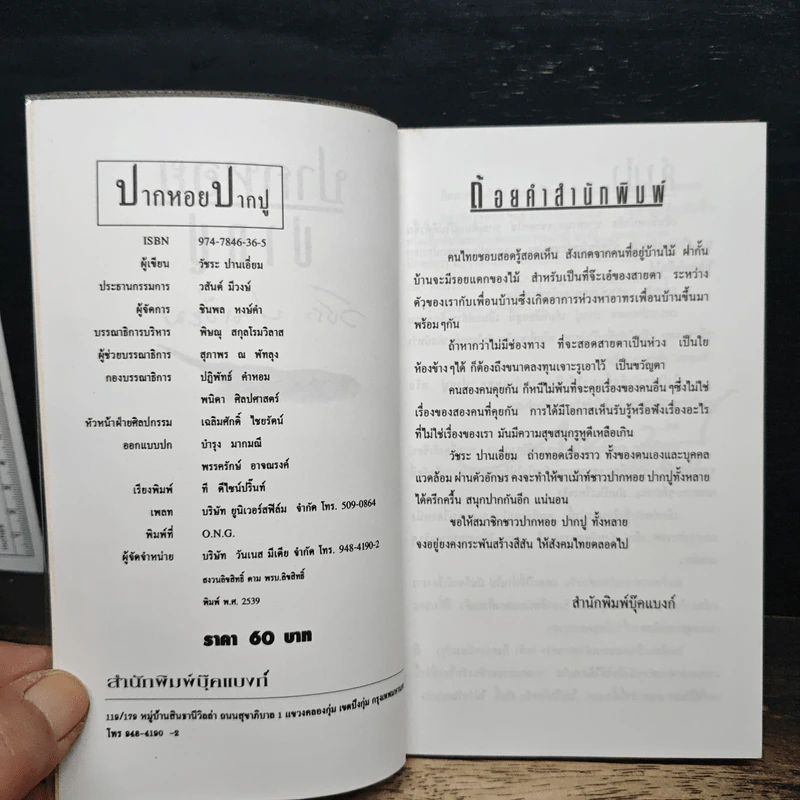 ปากหอยปากปู
ISBN 974-7846-36-5
ผู้เขียน วัชระ ปานเอี่ยม
ประธานกรรมการ วสันต์ มีวงษ์
ผู้จัดการ ชินพล หงษ์คำ
บรรณาธิการบริหาร พิษณุ สกุลโรมวิลาส
ผู้ช่วยบรรณาธิการ สุภาพร ณ พัทลุง
กองบรรณาธิการ ปฏิพัทธ์ คำหอม
พนิดา ศิลปศาสตร์
หัวหน้าฝ่ายศิลปกรรม เฉลิมศักดิ์ ไชยรัตน์
ออกแบบปก บำรุง มากมณี
พรรครักษ์ อาจณรงค์
เรียงพิมพ์ ที ดีไซน์ปริ๊นท์
เพลท บริษัท ยูนิเวอร์สฟิล์ม จำกัด โทร. 509-0864
พิมพ์ที่ O.N.G.
ผู้จัดจำหน่าย บริษัท วันเนส มีเดีย จำกัด โทร. 948-4190-2
สงวนลิขสิทธิ์ ตาม พรบ.ลิขสิทธิ์
พิมพ์ พ.ศ. 2539
ราคา 60 บาท
สำนักพิมพ์บุ๊คแบงก์
119/179 หมู่บ้านสินธานีวิลล่า ถนนสุขาภิบาล 1 แขวงคลองกุ่ม เขตบึงกุ่ม
โทร 948-4190 -2
ถ้อยคำสำนักพิมพ์
คนไทยชอบสอดรู้สอดเห็น สังเกตจากคนที่อยู่บ้านไม้ ฝากั้น
บ้านจะมีรอยแตกของไม้ สำหรับเป็นที่จ๊ะเอ๋ของสายตา ระหว่าง
ตัวของเรากับเพื่อนบ้านซึ่งเกิดอาการห่วงหาอาทรเพื่อนบ้านขึ้นมา
พร้อมๆกัน
ถ้าหากว่าไม่มีช่องทาง ที่จะสอดสายตาเป็นห่วง เป็นใย
ห้องข้างๆได้ ก็ต้องถึงขนาดลงทุนเจาะรูเอาไว้ เป็นขวัญตา
คนสองคนคุยกัน ก็หนีไม่พ้นที่จะคุยเรื่องของคนอื่นๆซึ่งไม่ใช่
เรื่องของสองคนที่คุยกัน การได้มีโอกาสเห็นรับรู้หรือฟังเรื่องอะไร
ที่ไม่ใช่เรื่องของเรา มันมีความสุขสนุกรูหูดีเหลือเกิน
วัชระ ปานเอี่ยม ถ่ายทอดเรื่องราว ทั้งของตนเองและบุคคล
แวดล้อม ผ่านตัวอักษร คงจะทำให้ขาเม้าท์ชาวปากหอย ปากปูทั้งหลาย
ได้ครึกครื้น สนุกปากกันอีก แน่นอน
ขอให้สมาชิกชาวปากหอย ปากปู ทั้งหลาย
จงอยู่ยงคงกระพันสร้างสีสัน ให้สังคมไทยตลอดไป
สำนักพิมพ์บุ๊คแบงก์